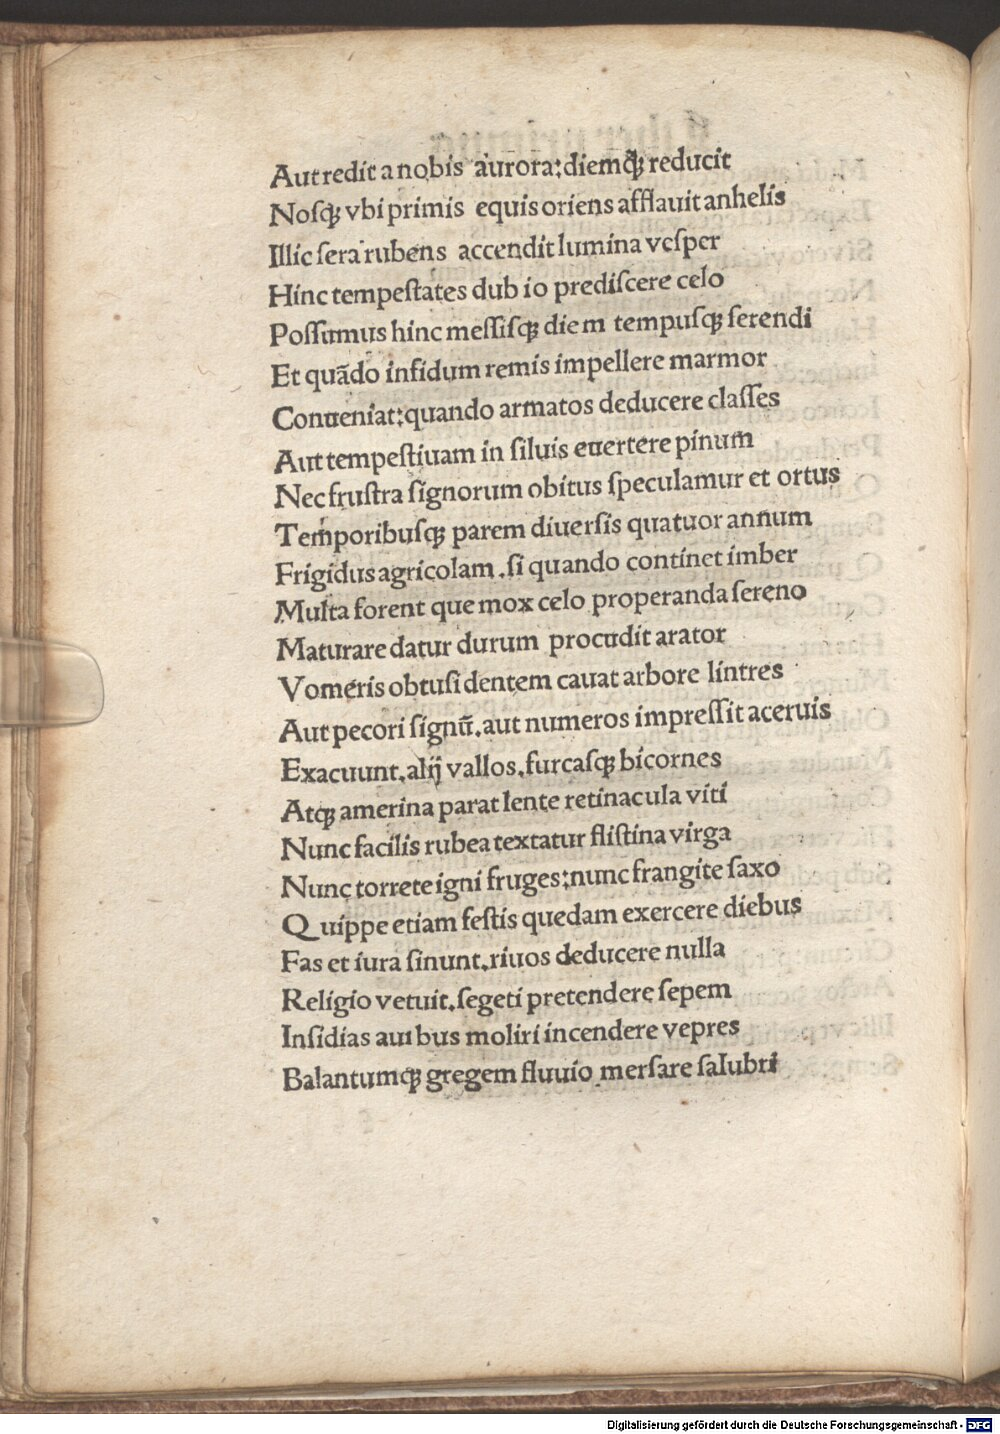 Aut redit a nobis aurora: diemqꝫ reducit
Noſqꝫ vbi primis equis oriens afflauit anhelis
Illic ſera rubens accendit lumina veſper
Hinc tempeſtates dubio prediſcere celo
Poſſumus hinc meſſiſqꝫ diem tempuſqꝫ ſerendi
Et quãdo infidum remis impellere marmor
Conueniat: quando armatos deducere claſſes
Aut tempeſtiuam in ſiluis euertere pinum
Nec fruſtra ſignorum obitus ſpeculamur et ortus
Temporibuſqꝫ parem diuerſis quatuor annum
Frigidus agricolam .ſi quando continet imber
Multa forent que mox celo properanda ſereno
Maturare datur durum procudit arator
Vomeris obtuſi dentem cauat arbore lintres
Aut pecori ſignũ. aut numeros impreſſit aceruis
Exacuunt. alij vallos. furcaſqꝫ bicornes
Atqꝫ amerina parat lente retinacula viti
Nunc facilis rubea textatur fliſtina virga
Nunc torrete igni fruges: nunc frangite ſaxo
Quippe etiam feſtis quedam exercere diebus
Fas et iura ſinunt. riuos deducere nulla
Religio vetuit. ſegeti pretendere ſepem
Inſidias auibus moliri incendere vepres
Balantumqꝫ gregem fluuio merſare ſalubri
Digitalisierung gefördert durch die Deutsche Forschungsgemeinschaft - DFG